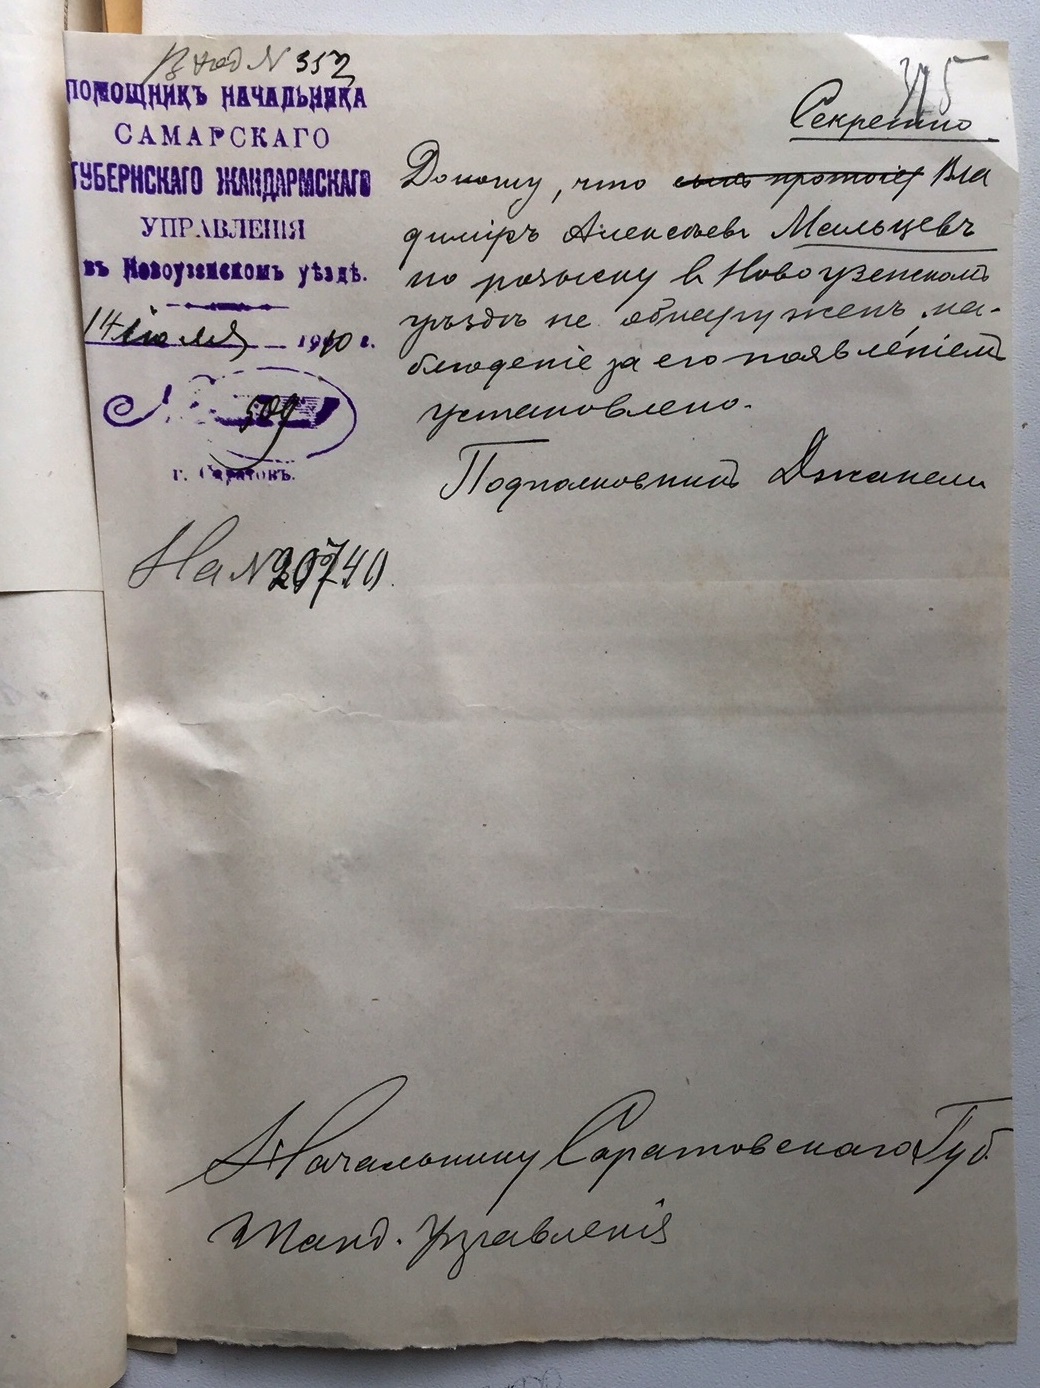 Вход N 352
ПОМОЩНИКЪ НАЧАЛЬНИКА
САМАРСКАГО
ГУБЕРНСКАГО ЖАНДАРМСКАГО
УПРАВЛЕНІЯ
въ Новоузенскомъ уѣздѣ.
14 іюля 1910 г.
509
г. Саратовъ.
На N 20740.
Секретно
Доношу, что сынъ протоіер Вла
диміръ Алексѣевъ Мальцевъ
по розыску въ Новоузенскомъ
уѣздѣ не обнаруженъ, на-
блюденіе за его появленіемъ
установлено.
Подполковникъ Джакели
Начальнику Саратовскаго Губ.
Жанд. Управленія